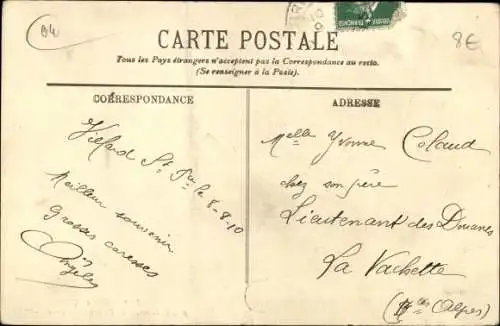 04
8€
CARTE POSTALE
Tous les Pays étrangers n'acceptent pas la Correspondance au recto.
(Se renseigner à la Poste).
CORRESPONDANCE
ADRESSE
Villard St le 8-8-10
Meilleur souvenir
Grosses caresses
Melle Yvonne Colaud
chez son père
Lieutenant des Douanes
La Vachette
(Htes Alpes)